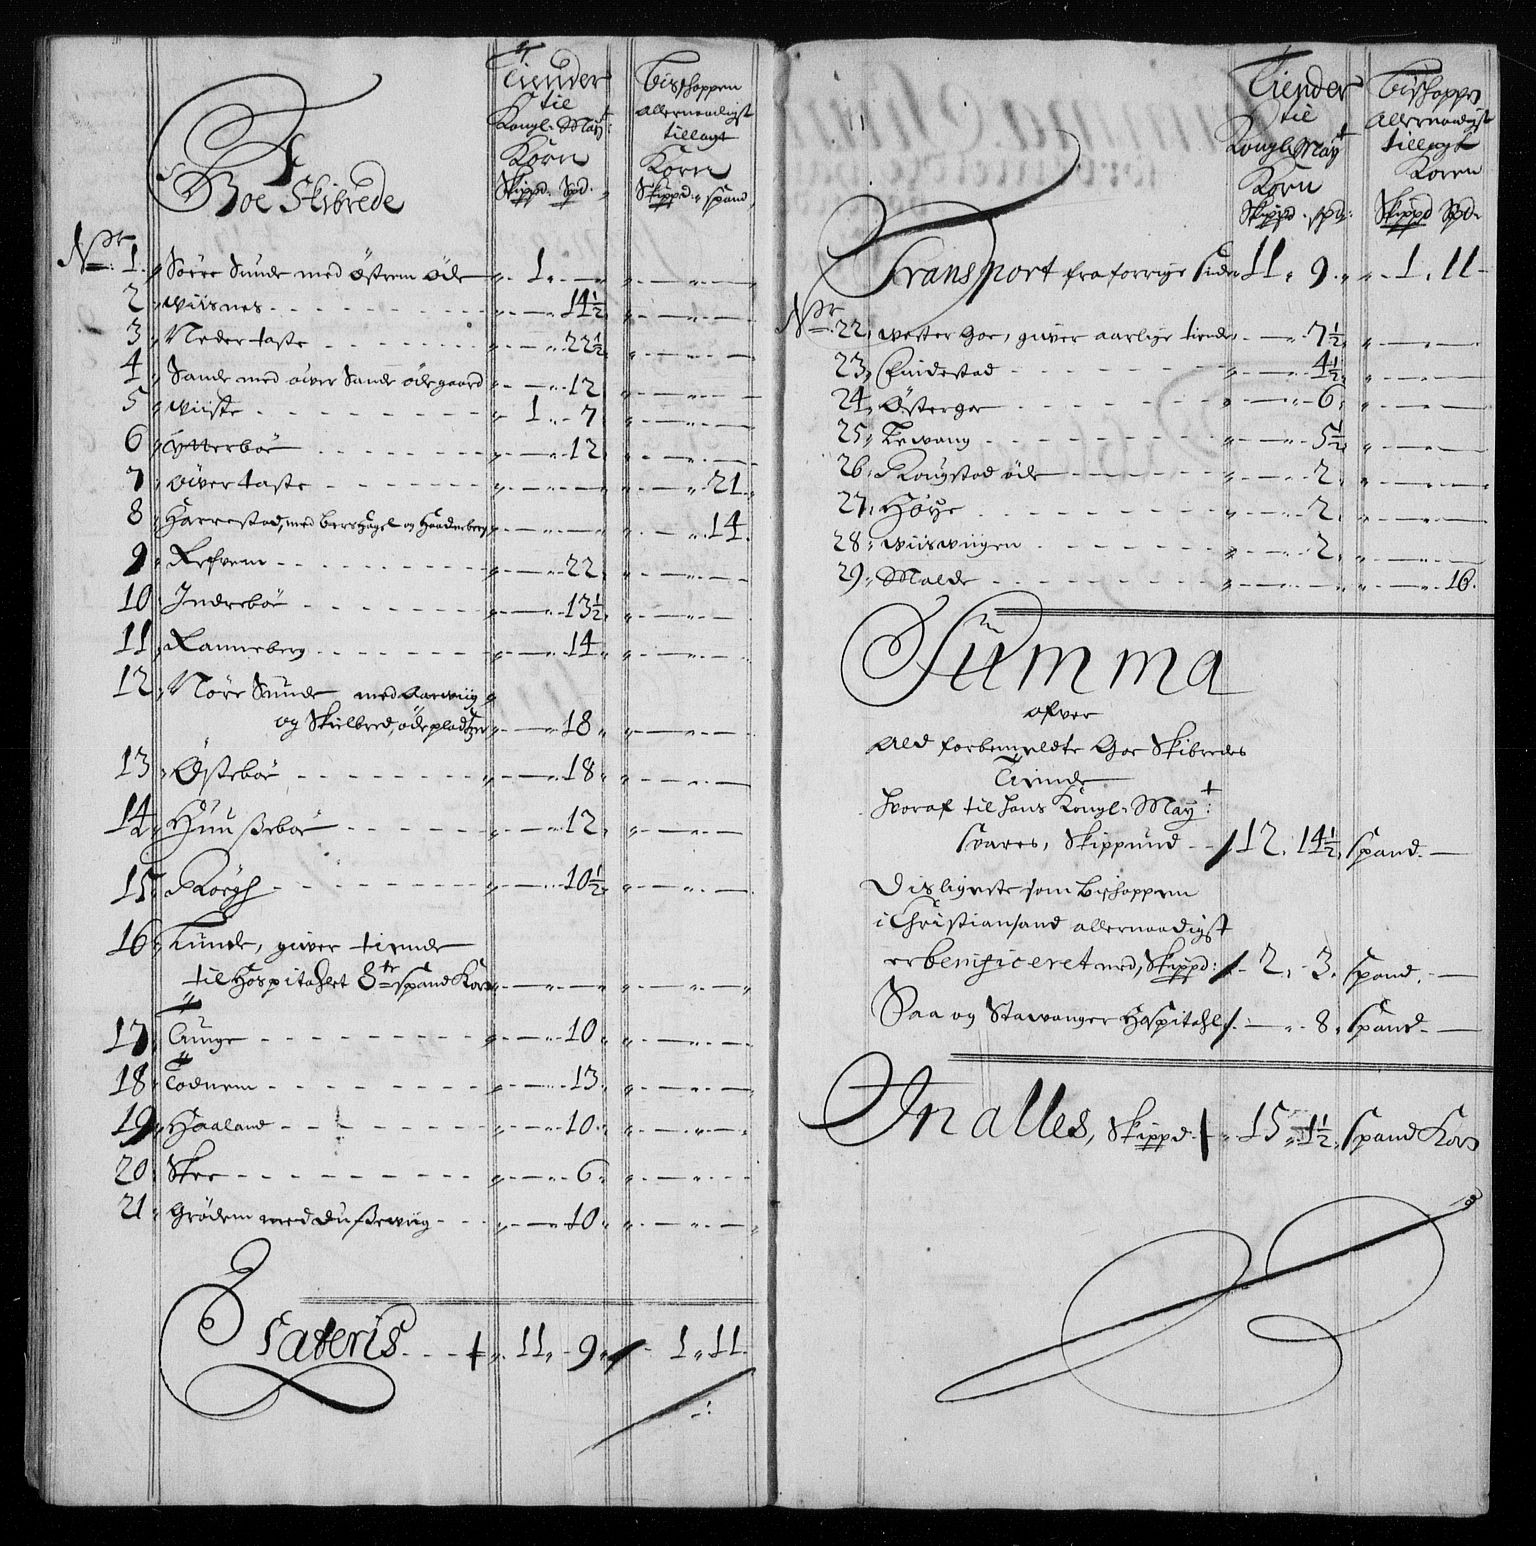 Af
Goe Skibrede
Tiender
til
Kongl. May:t
Korn
Skippd. Spd.
Bishoppen
allernaadigst
tillagt
Korn
Skippd. Spand
Nr. 1. Søere Sunde med Østrem Øde 1.
2 wiisnes 14½
3 Neder taste 22½
4 Sande med Øiver Sande Ødegaard 12
5 wiiste 1. 7
6 Ytterbøe 12
7 Øiver taste 21
8 Harrestad, med Bershagel og Haadneberg 14
9 Refvem 22
10 Indrebøe 13½
11 Ranneberg 14
12 Nøre Sunde med Aarwiig
og Skielbred, ødepladtzer 18
13 Østebøe 18
14 Huußebøe 12
15 Røegh 10½
16 Tunde, giiver tiende
til Hospitahlet 8te spand Korn
17 Tiunge 10
18 Todnem 13
19 Haaland 10
20 Skee 6
21 Grødem med Dußewiig 10
Lateris 11. 9 1. 11.
Tiender
til
Kongl. May:t
Korn
Skippd. spd:
Bishoppen
Allernaadigst
tillagt
Koren
Skippd Spd.
Transport fra forrige side 11. 9. 1. 11
Nr. 22. wester Goe, giiver aarlige tiende 7½
23. Endestad 4½
24. Østergoe 6
25. Tewang 5½
26. Raugstad øde 2
27. Høye 2
28. wiiswiigen 2
29. Malde 16.
Summa
ofver
Ald forbemeldte Goe Skibredes
Tiende
hvoraf til hans Kongl. May:t
svares, Skippund 12. 14½. Spand.
Disligeste som Bishoppen
i Christiansand allernaadigst
er benificeret med, Skippd: 2. 3. Spand.
Saa og Stawanger Hospitahl 8. Spand.
In alles, Skippd. 15. 1½. Spand Korn